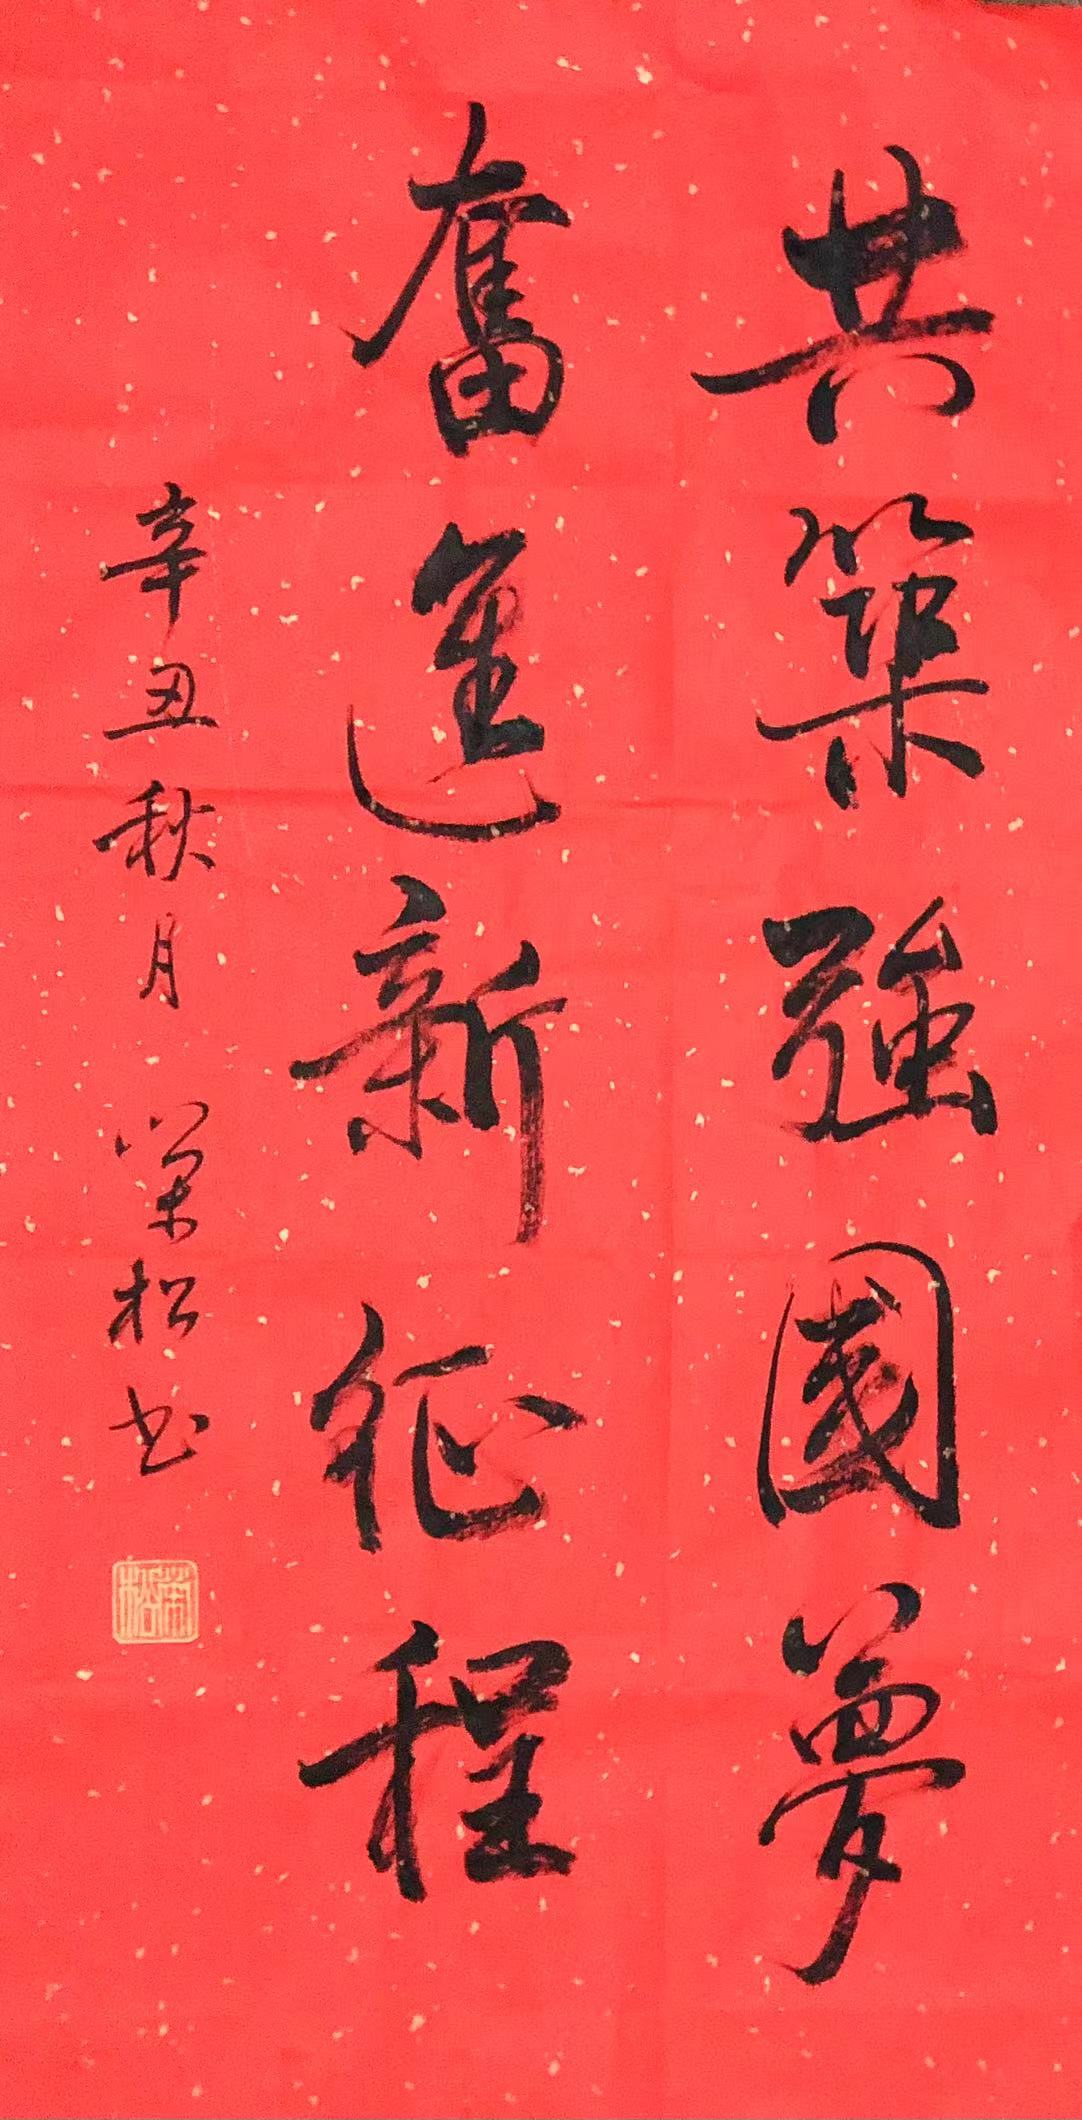 共築強國夢
奮進新征程
辛丑秋月 榮松书
榮松